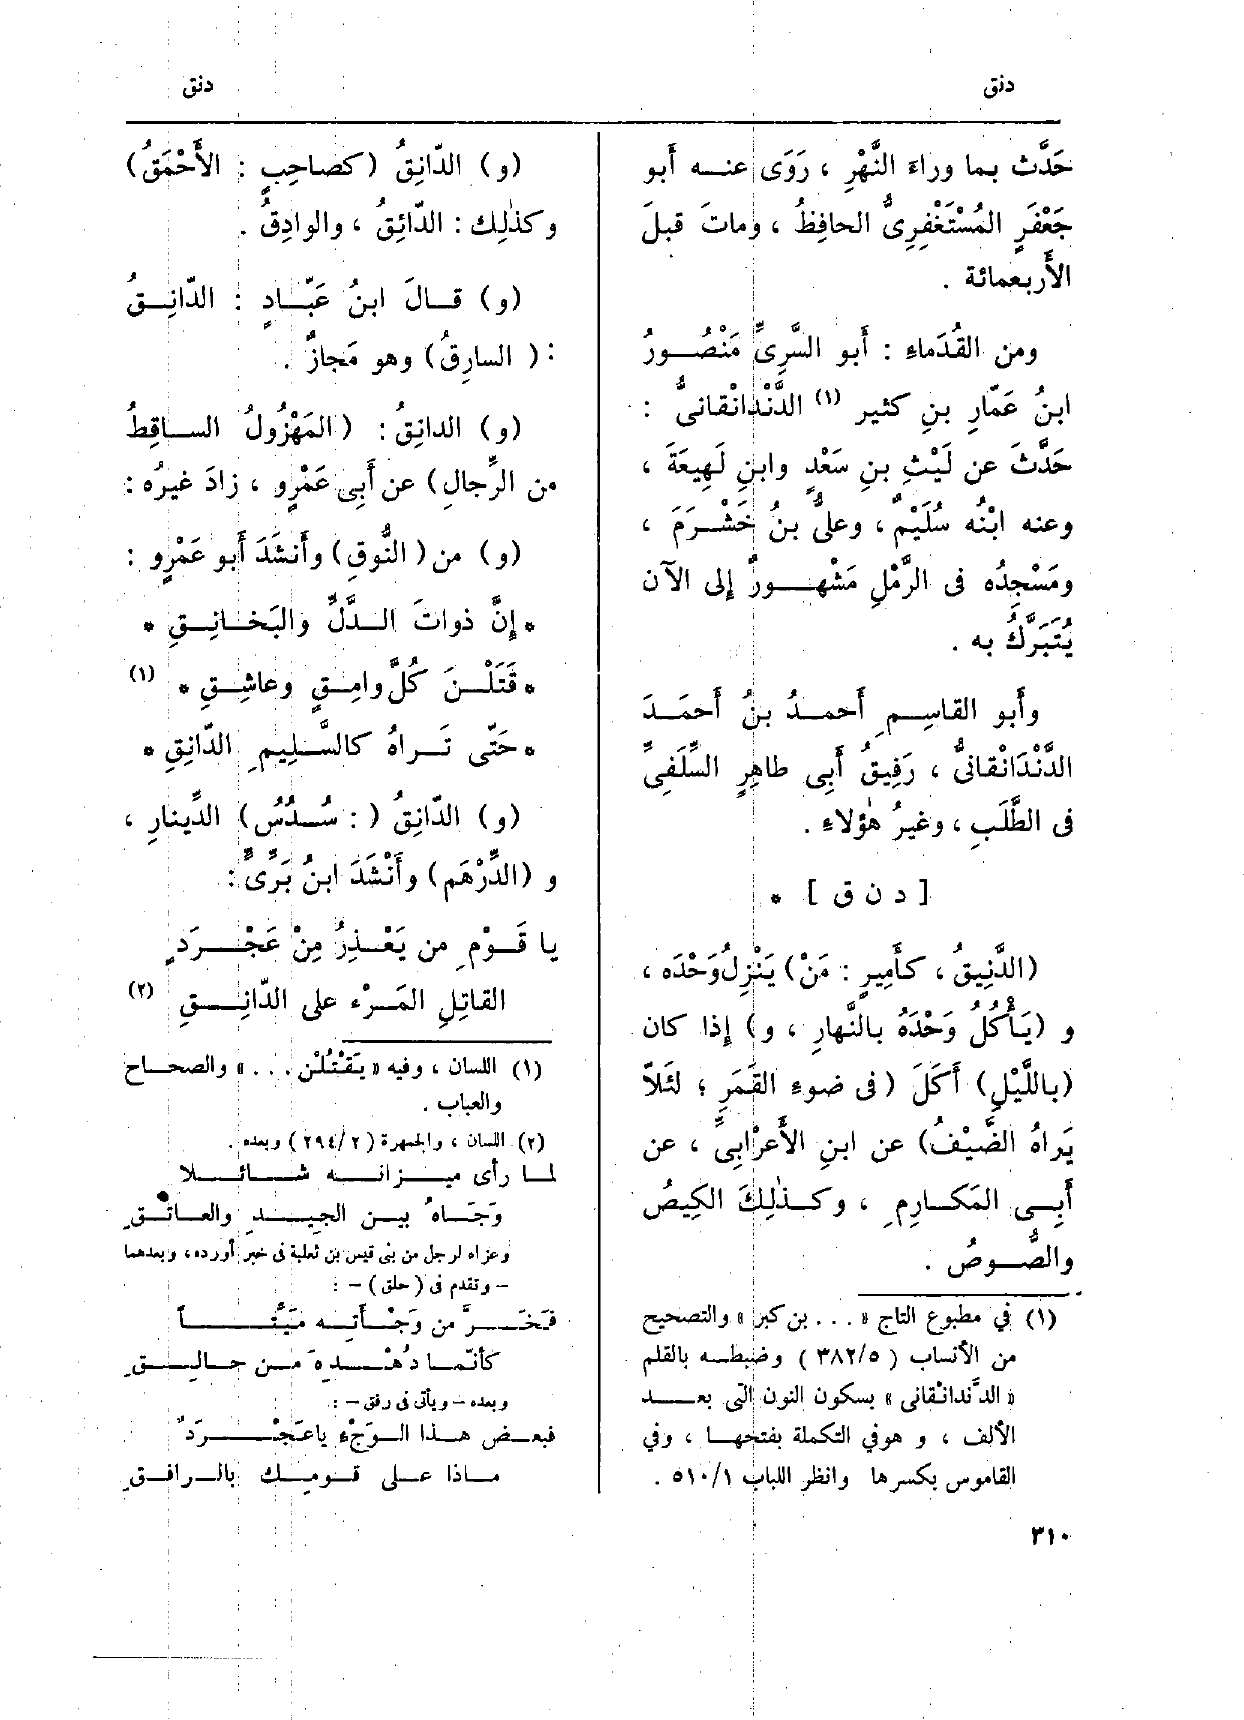 دنق
دنق
حَدَّث بما وراءَ النَّهْرِ ، رَوَى عنه أَبو
جَعْفَرٍ المُسْتَغْفِرِىُّ الحافِظُ ، وماتَ قبلَ
الأَربعمائة .
ومن القُدَماءِ : أَبو السَّرِىِّ مَنْصُورُ
ابنُ عَمّارِ بنِ كثير (١) الدَّنْدانْقانىُّ :
حَدَّثَ عن لَيْثِ بنِ سَعْدٍ وابنِ لَهِيعَةَ ،
وعنه ابْنُه سُلَيْمٌ ، وعلىُّ بنُ خَشْرَمَ ،
ومَسْجِدُه فى الرَّمْلِ مَشْهورٌ إِلى الآن
يُتَبَرَّكُ به .
وأَبو القاسِمِ أَحمدُ بنُ أَحمَدَ
الدَّنْدَانْقانىُّ ، رَفِيقُ أَبِى طاهِرٍ السِّلَفِىِّ
فى الطَّلَبِ ، وغيرُ هٰؤلاءِ .
[ د ن ق ] *
(الدَّنِيقُ ، كأَمِيرٍ : مَنْ) يَنْزِلُ وَحْدَه ،
و (يَأْكُلُ وَحْدَهُ بالنَّهارِ ، و) إِذا كان
(باللَّيْلِ) أَكَلَ (فى ضوءِ القَمَرِ ؛ لئَلاّ
يَراهُ الضَّيْفُ) عن ابنِ الأَعرْابِىِّ ، عن
أَبِى المَكارِمِ ، وكذٰلِكَ الكِيصُ
والصُّوصُ .
(١) في مطبوع التاج « ... بن كبر » والتصحيح
من الأنساب ( ٣٨٢/٥ ) وضبطه بالقلم
« الدَّندانْقانى » بسكون النون التى بعد
الألف ، و هو في التكملة بفتحها ، وفي
القاموس بكسرها وانظر اللباب ٥١٠/١ .
(و) الدّانِقُ (كصاحِبٍ : الأَحْمَقُ)
وكذٰلِك : الدّائِقُ ، والوادِقُ .
(و) قالَ ابنُ عَبّادٍ : الدّانِقُ
: ( السارِقُ) وهو مَجازٌ .
(و) الدانِقُ : (المَهْزُولُ الساقِطُ
من الرِّجالِ) عن أَبِى عَمْرٍو ، زادَ غيرُه :
(و) من ( النُّوقِ) وأَنشَدَ أَبو عَمْرٍو :
* إِنَّ ذواتَ الدَّلِّ والبَخانِقِ *
* قَتَلْنَ كُلَّ وامِقٍ وعاشِقِ * (١)
* حَتّى تَراهُ كالسَّلِيمِ الدّانِقِ *
(و) الدّانِقُ ( : سُدُسُ) الدِّينارِ ،
و (الدِّرْهَمِ) وأَنْشَدَ ابنُ بَرِّىٍّ :
يا قَوْمِ من يَعْذِرُ مِنْ عَجْرَدٍ
القاتِلِ المَرْءِ على الدّانِقِ (٢)
(١) اللسان ، وفيه « يَقْتُلْن ... » والصحاح
والعباب .
(٢) اللسان ، والجمهرة (٢٩٤/٢) وبعده .
لما رأى ميزانه شائلا
وَجَاهُ بين الجيد والعاتق
وعزاه لرجل من بنى قيس بن ثعلبة فى خبر أورده ، وبعدهما
- وتقدم فى ( حلق ) - :
فَخَرَّ من وَجْأته مَيِّتاً
كأنّما دُهْدِهَ من حالق
وبعده - ويأتى فى رفق - :
فبعض هذا الوَجْءِ ياعَجْرَدُ
ماذا على قومك بالرافق
٣١٠